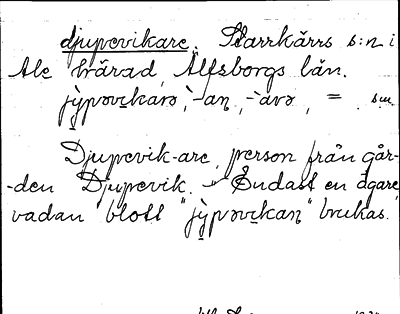 djupevikare. Starrkärrs s:n i
Ale härad, Älfsborgs län.
jỳpovikaro, -an, -aro, =, sm.
Djupevik-are, person från går-
-den Djupevik. - Endast en ägare,
vadan blott "jỳpovikan" brukas.